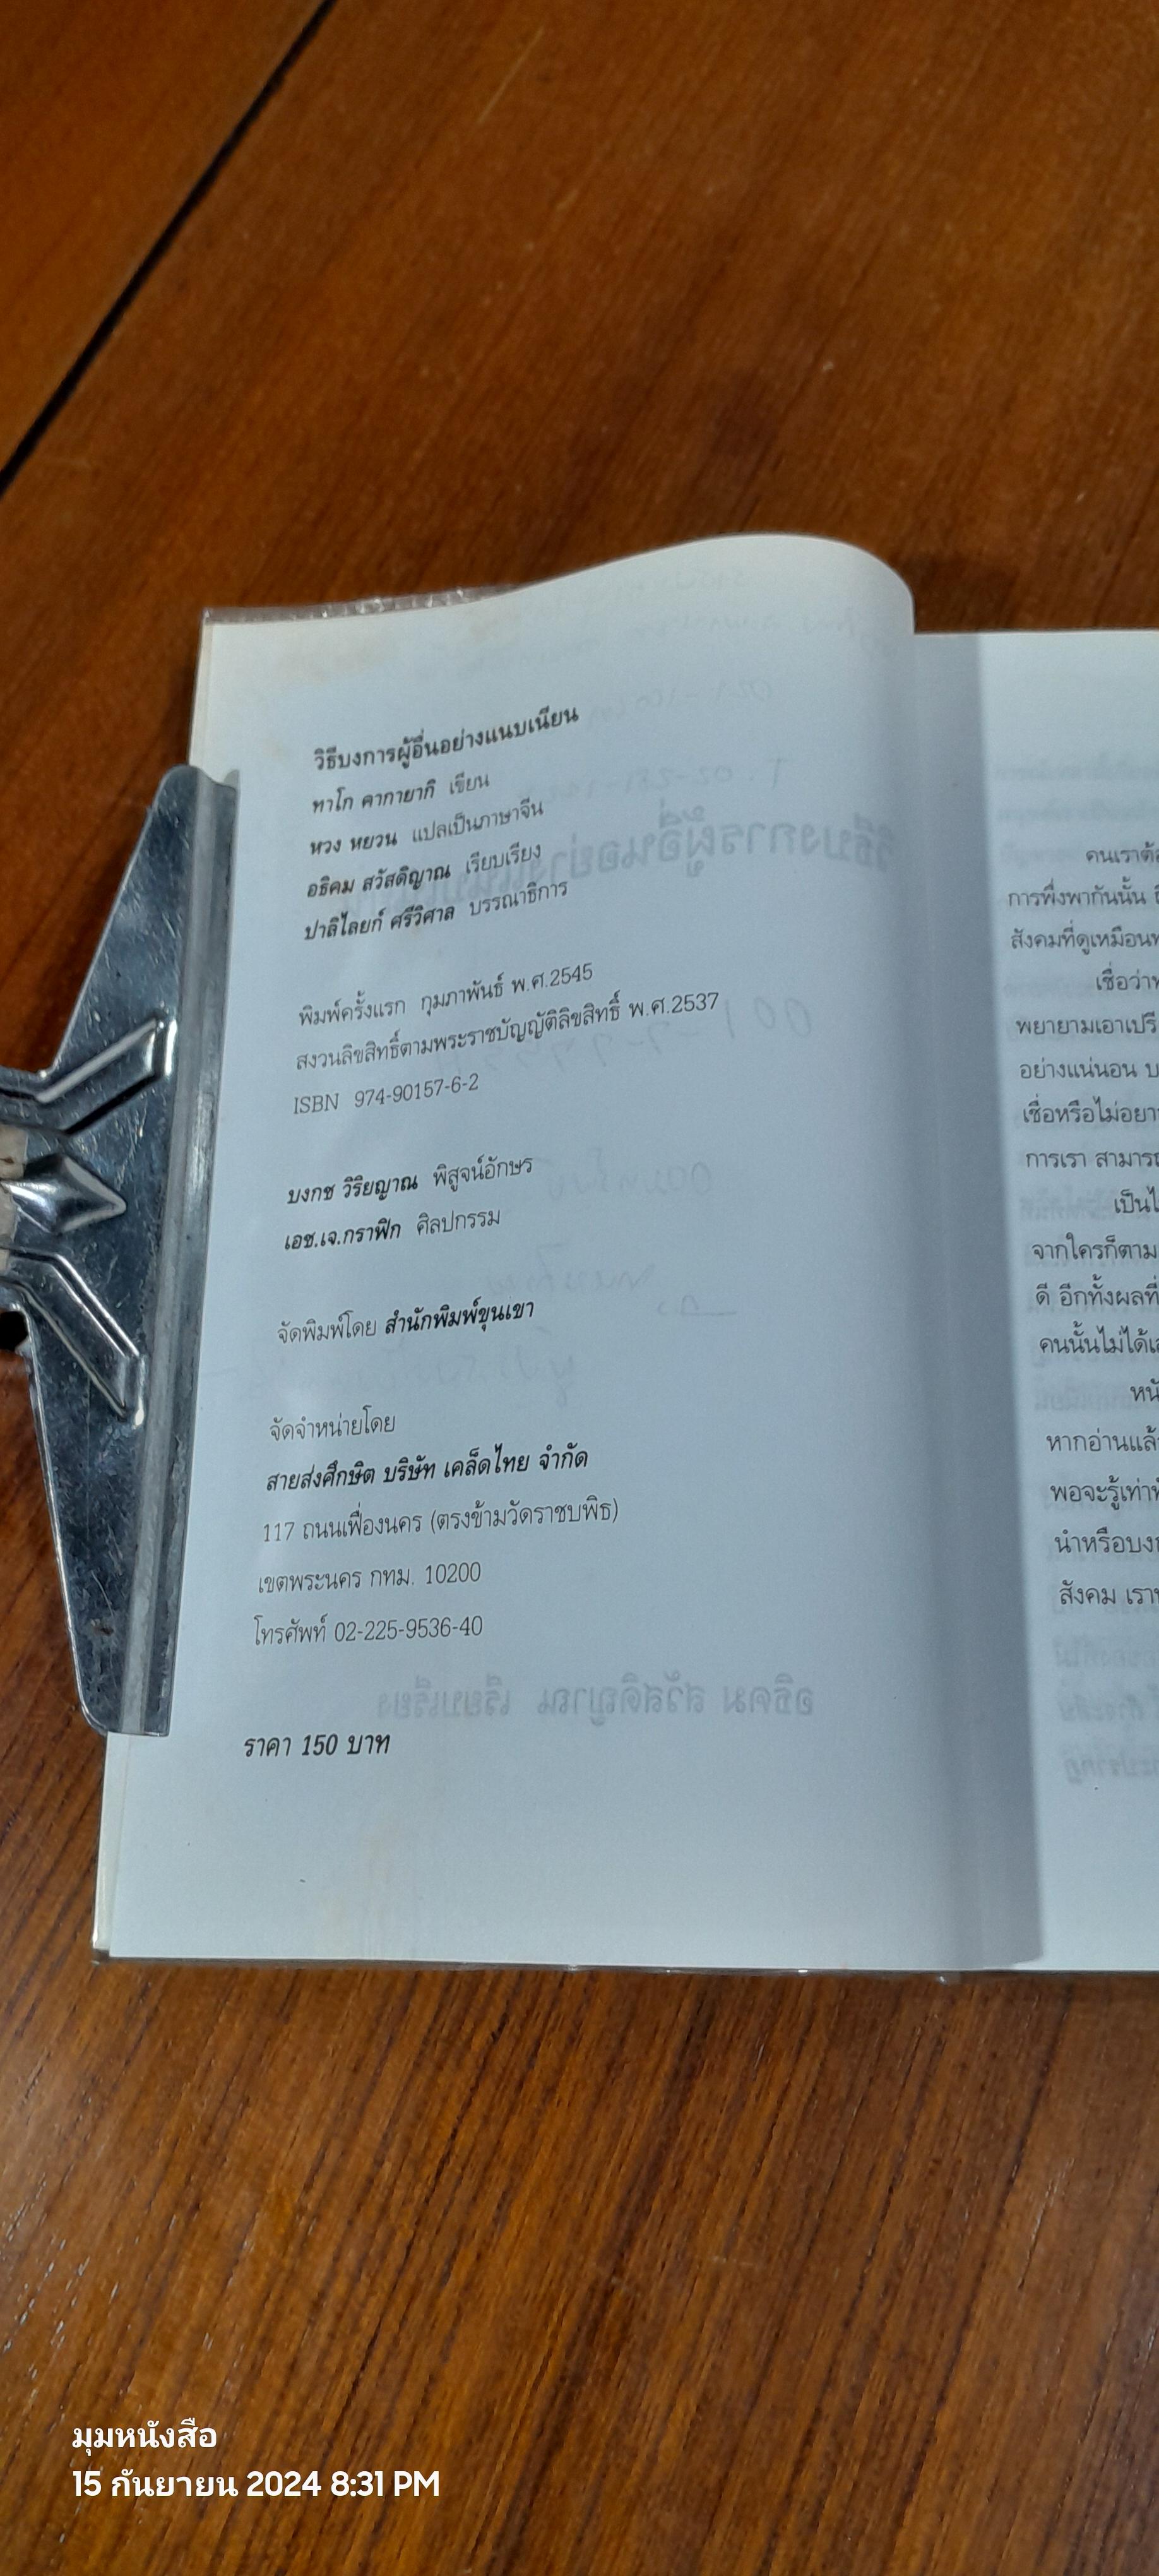 วิธีบงการผู้อื่นอย่างแนบเนียน
ทาโก คากายากิ เขียน
หวง หยวน แปลเป็นภาษาจีน
อธิคม สวัสดิญาณ เรียบเรียง
ปาลิไลยก์ ศรีวิศาล บรรณาธิการ
พิมพ์ครั้งแรก กุมภาพันธ์ พ.ศ.2545
สงวนลิขสิทธิ์ตามพระราชบัญญัติลิขสิทธิ์ พ.ศ.2537
ISBN 974-90157-6-2
บงกช วิริยญาณ พิสูจน์อักษร
เอช.เจ.กราฟิก ศิลปกรรม
จัดพิมพ์โดย สำนักพิมพ์ขุนเขา
จัดจำหน่ายโดย
สายส่งศึกษิต บริษัท เคล็ดไทย จำกัด
117 ถนนเฟื่องนคร (ตรงข้ามวัดราชบพิธ)
เขตพระนคร กทม. 10200
โทรศัพท์ 02-225-9536-40
ราคา 150 บาท
คนเราต้อ
การพึ่งพากันนั้น
สังคมที่ดูเหมือน
เชื่อว่า
พยายามเอาเปรี
อย่างแน่นอน บ
เชื่อหรือไม่อยา
การเรา สามารถ
เป็นไ
จากใครก็ตาม
ดี อีกทั้งผลที่
คนนั้นไม่ได้
หนั
หากอ่านแล้
พอจะรู้เท่า
นำหรือบง
สังคม เรา
มุมหนังสือ
15 กันยายน 2024 8:31 PM